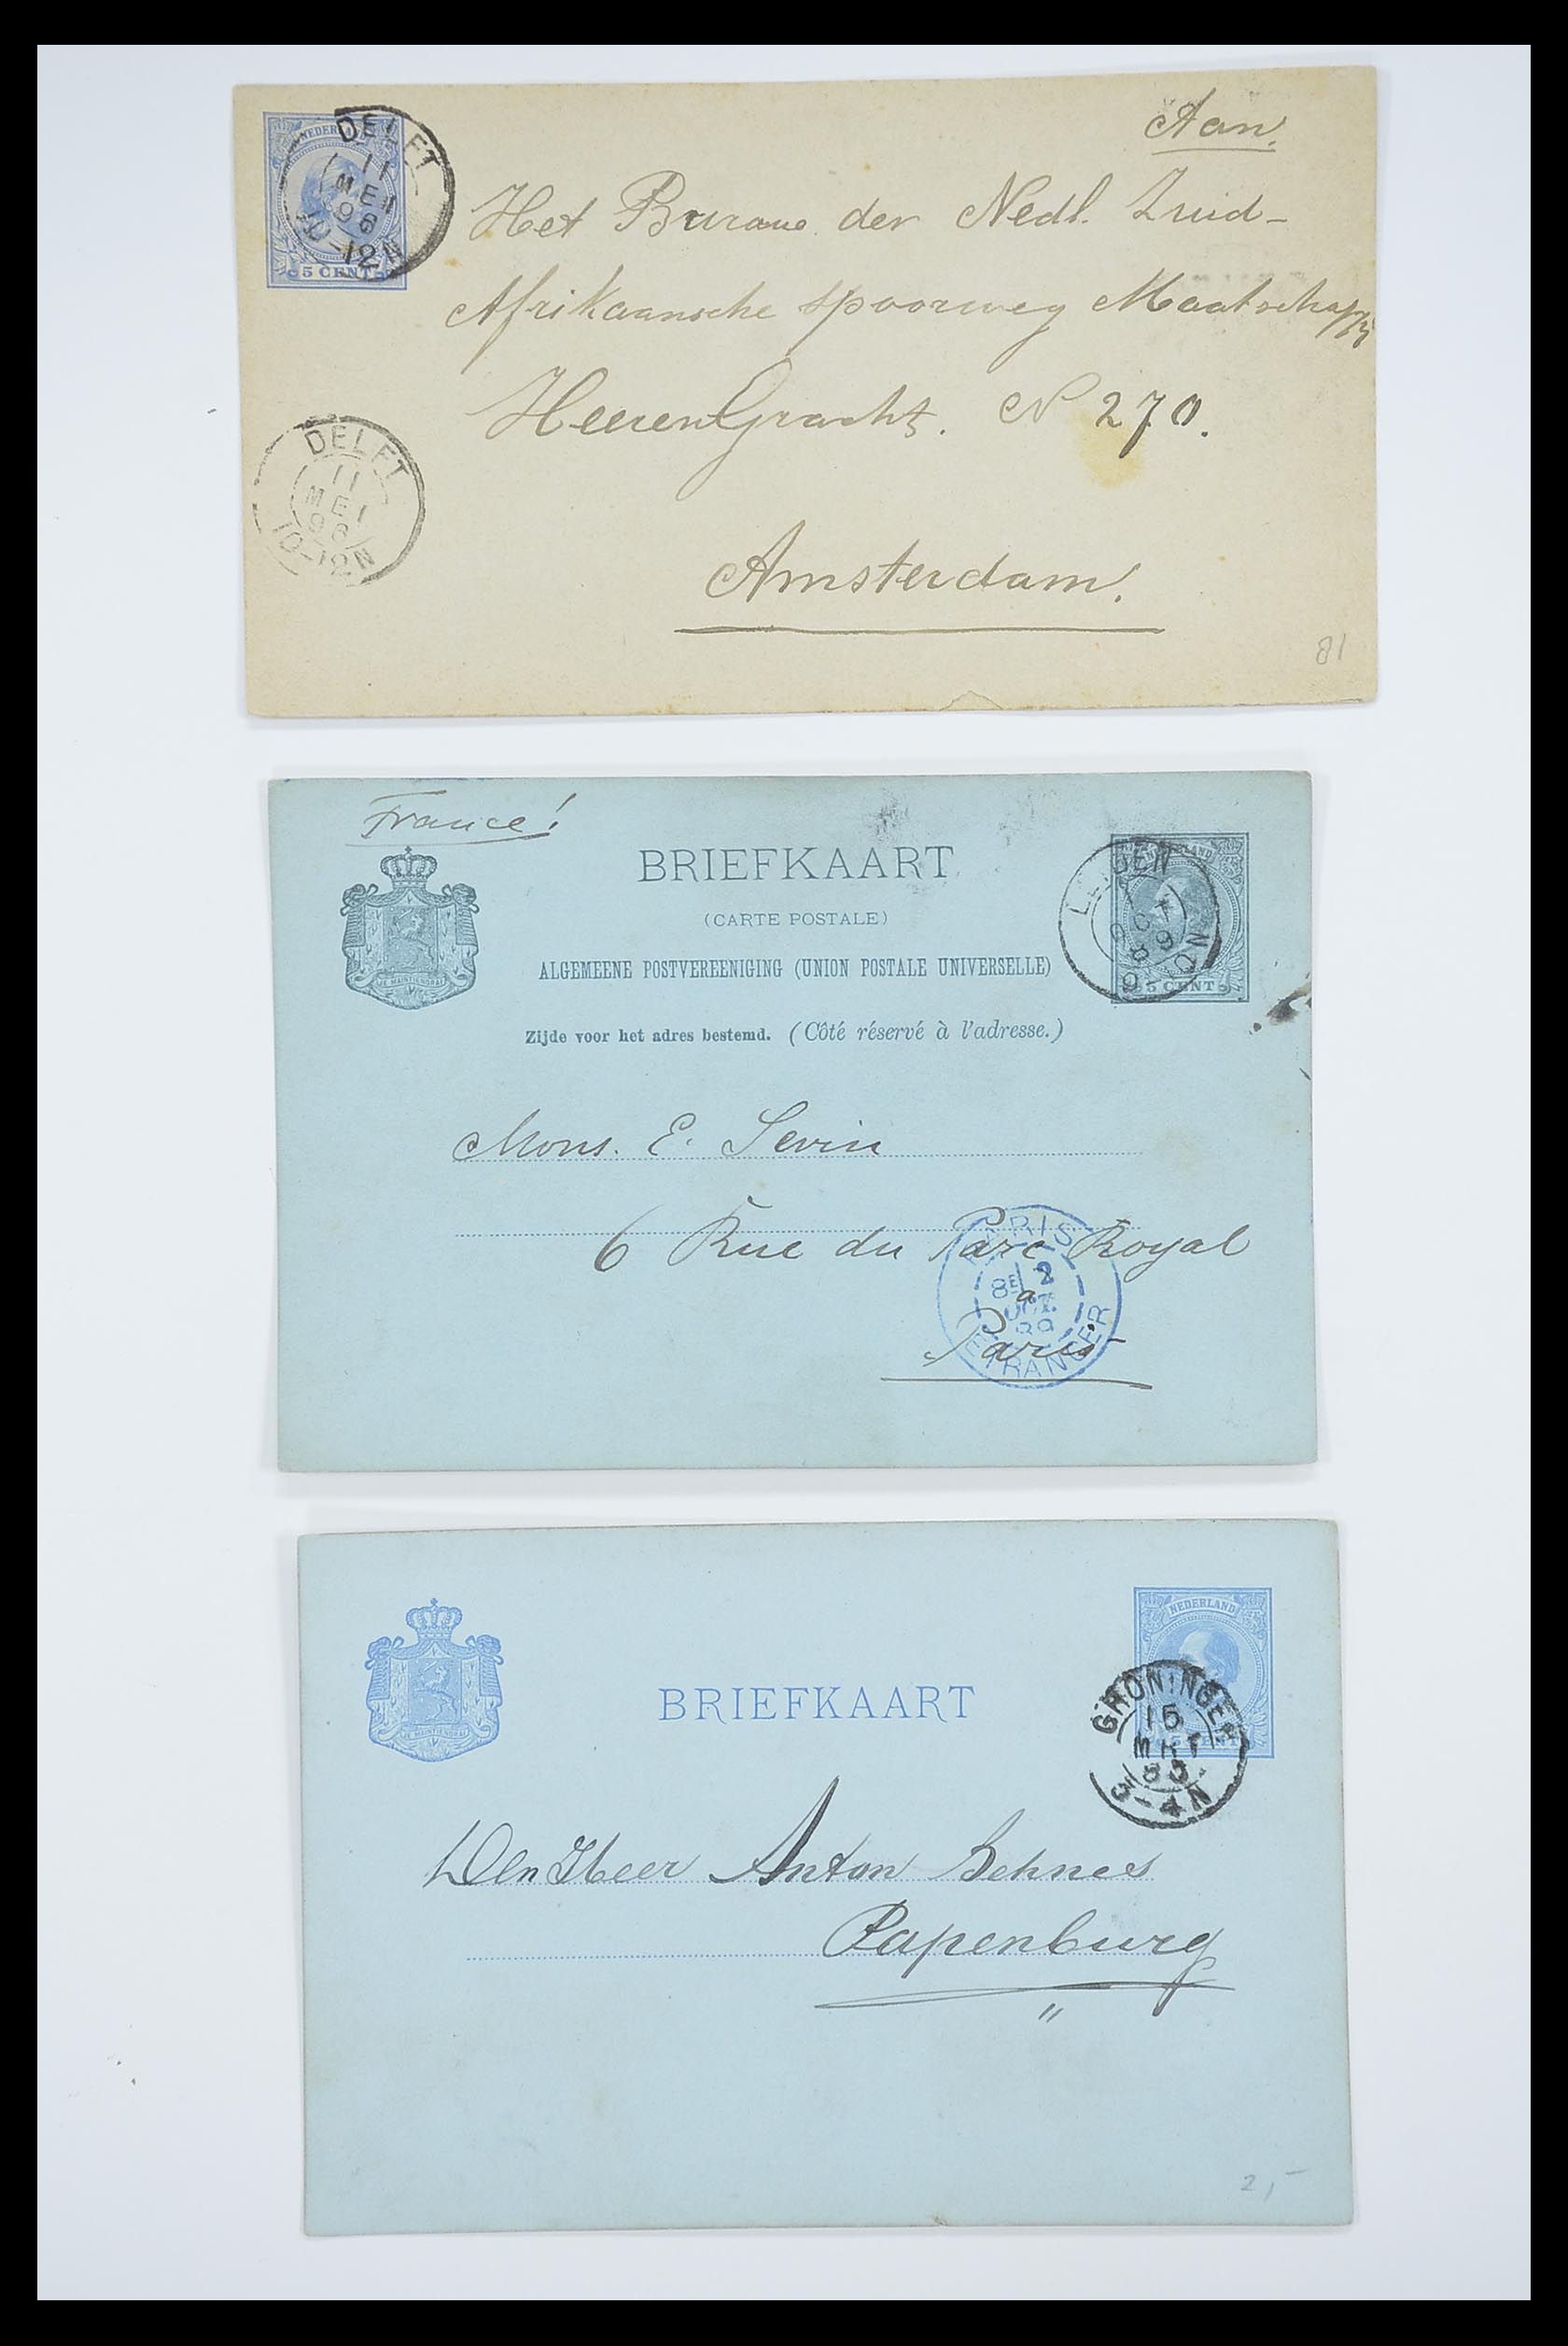 Aan.
NEDERL
5 CENT
DELFT
11
MEI
96
10-12N
Het Burauw der Nedl. Zuid-
Afrikaansche Spoorweg Maatschappij
HeerenGracht. No 270.
DELFT
11
MEI
96
10-12N
Amsterdam.
81
France!
BRIEFKAART
(CARTE POSTALE)
ALGEMEENE POSTVEREENIGING (UNION POSTALE UNIVERSELLE)
Zijde voor het adres bestemd. (Côté réservé à l'adresse.)
JE MAINTIENDRAI
LEIDEN
OCT
89
9-10N
5 CENT
Mons. E. Sevin
6 Rue du Parc Royal
a
Paris
PARIS
8E 2
OCT.
89
ETRANGER
NEDERLAND
GRONINGEN
15
MRT
3-4N
JE MAINTIENDRAI
BRIEFKAART
Den Heer Anton Behnes
Papenburg
2,-